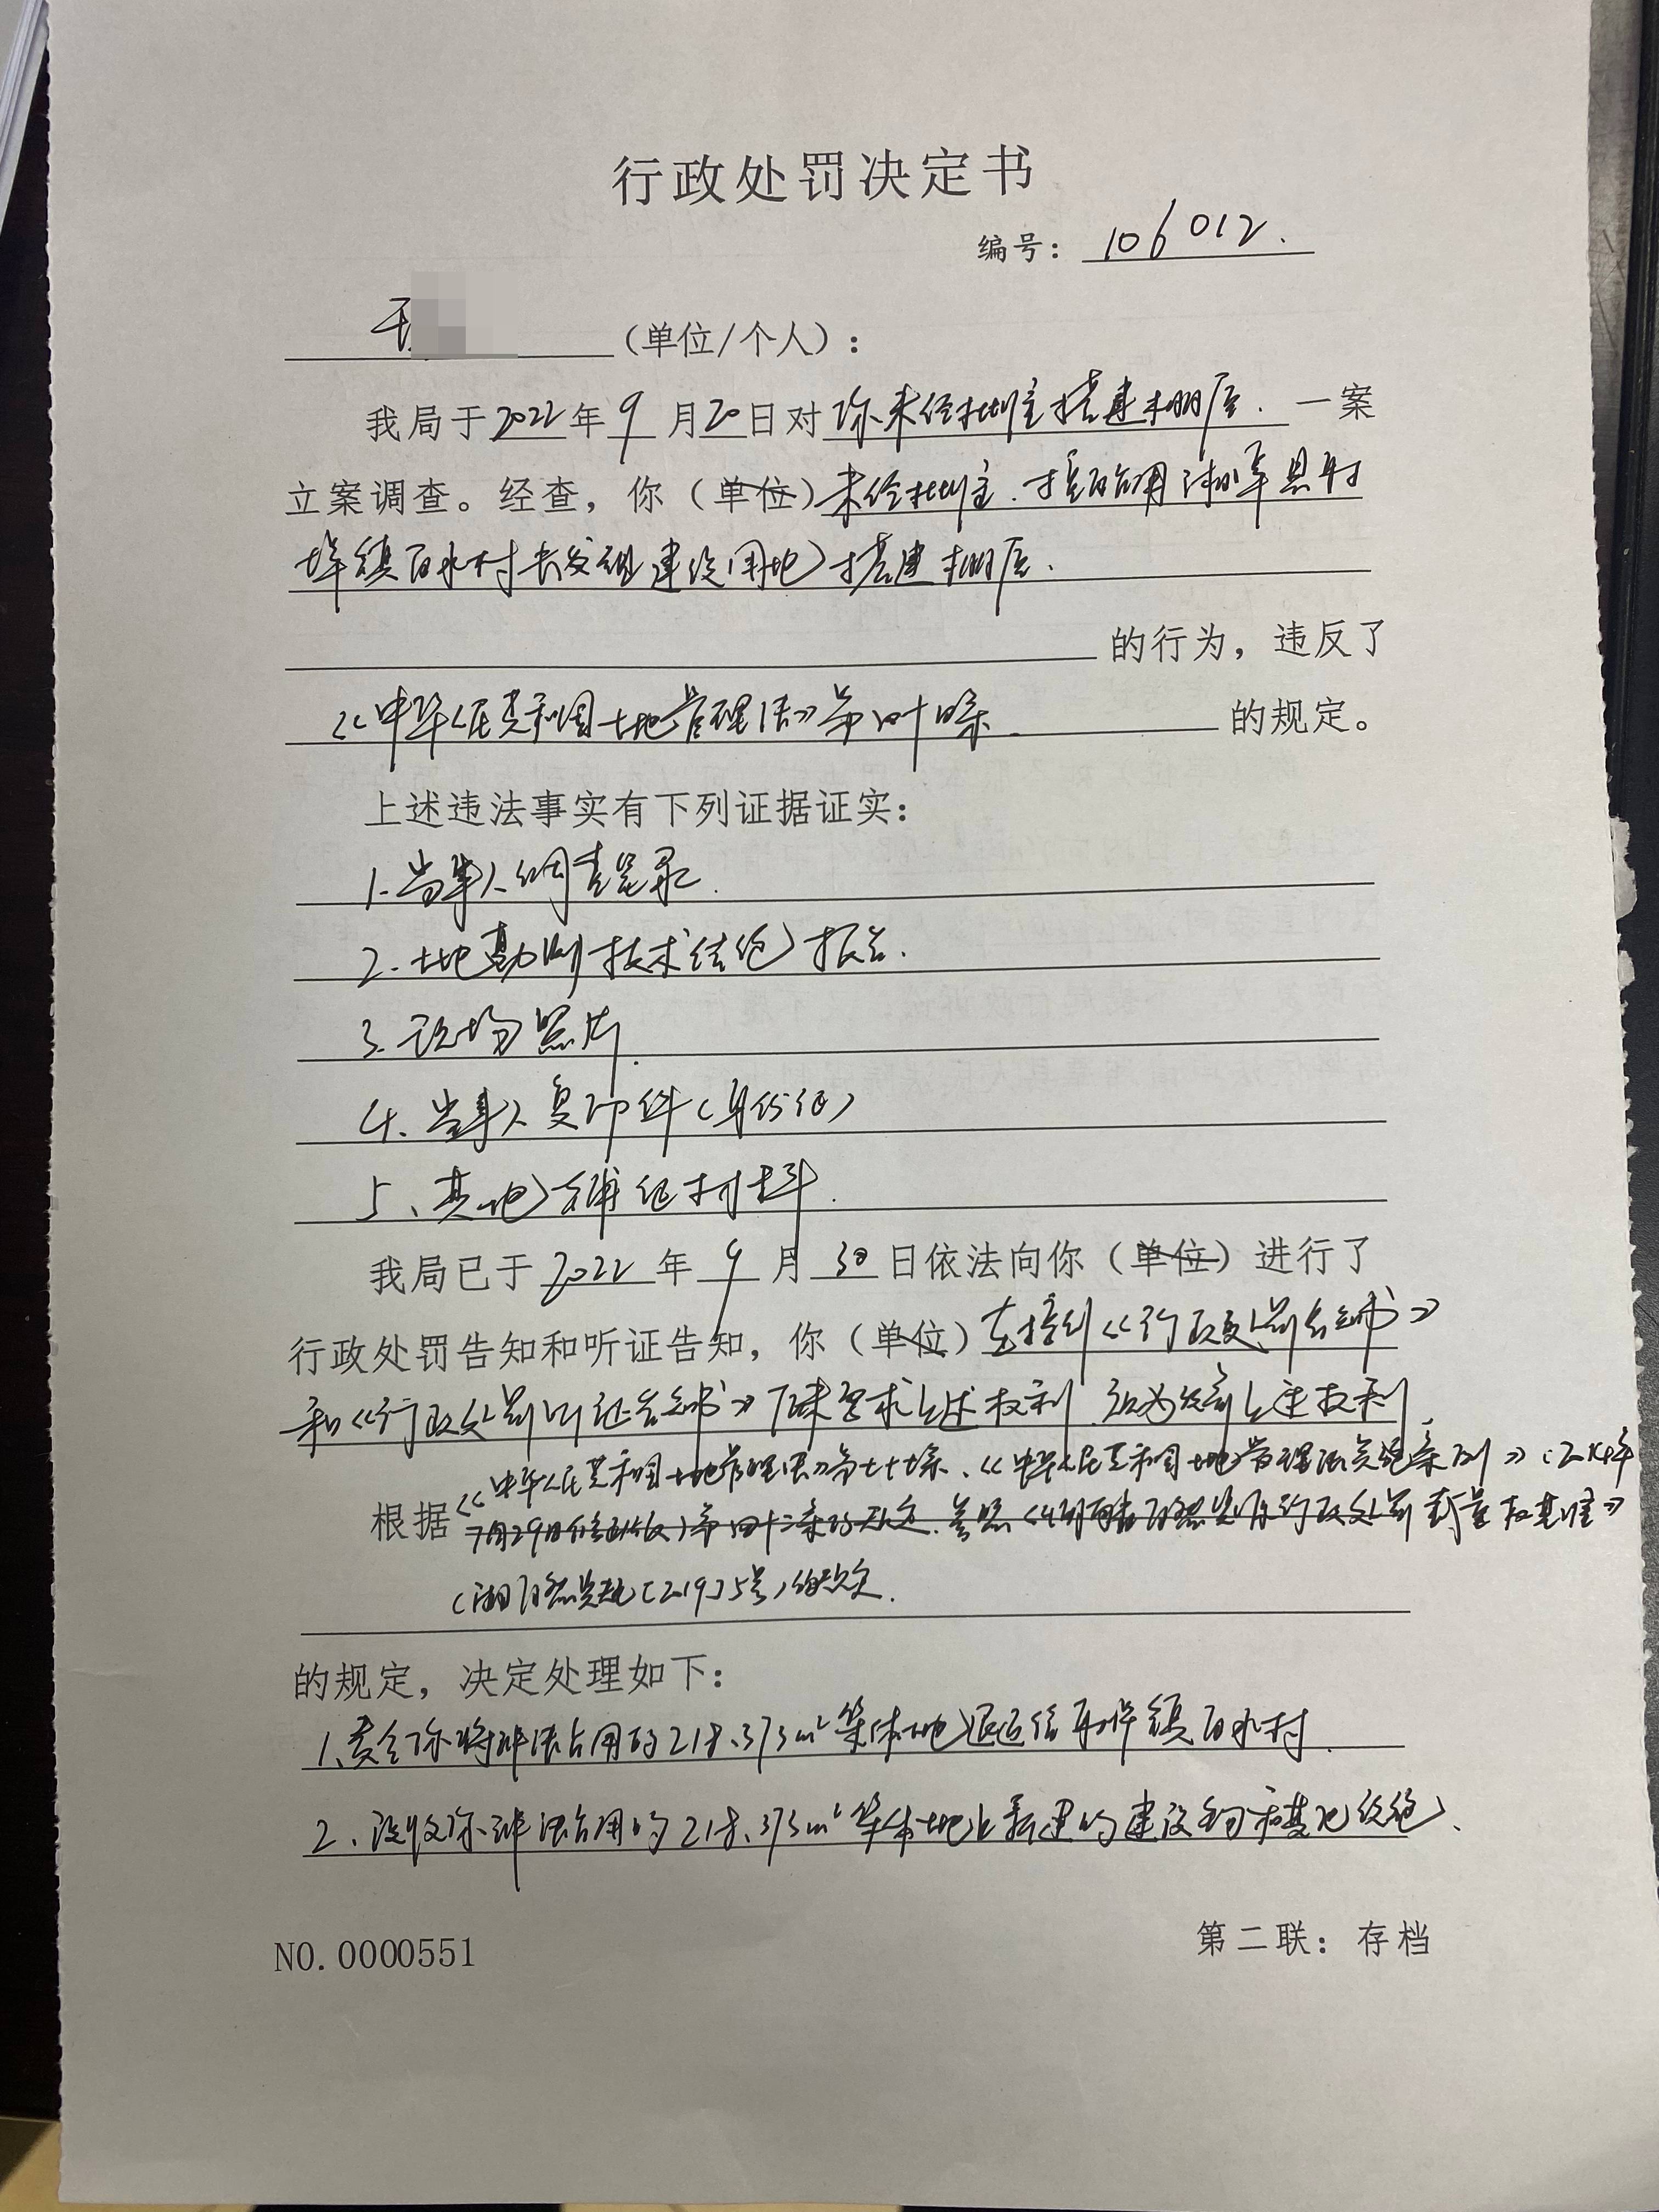 行政处罚决定书
编号：106012.
（单位/个人）：
我局于2022年9月20日对你未经批准搭建棚房.一案
立案调查。经查，你（单位）未经批准.擅自占用
镇白水村长发组建设用地搭建棚房.
的行为，违反了
《中华人民共和国土地管理法》第四十四条.的规定。
上述违法事实有下列证据证实：
1.当事人的调查笔录.
2.土地勘测技术结论报告.
3.现场照片.
4.当事人复印件（身份证）
5、其他旁证材料.
我局已于2022年9月30日依法向你（单位）进行了
行政处罚告知和听证告知，你（单位）在接到《行政处罚告知书》
和《行政处罚听证告知书》后未要求上述权利.视为放弃上述权利.
根据《中华人民共和国土地管理法》第七十七条、《中华人民共和国土地管理法实施条例》（2014年
7月29日修正版）第四十二条的规定.参照《湖南省自然资源行政处罚裁量权基准》
（湘自然资规[2019]5号）的规定.
的规定，决定处理如下：
1、责令你将非法占用的218.373m²集体土地退还给 镇白水村.
2、没收你非法占用的218.373m²集体土地上新建的建设物和其他设施、
NO.0000551
第二联：存档